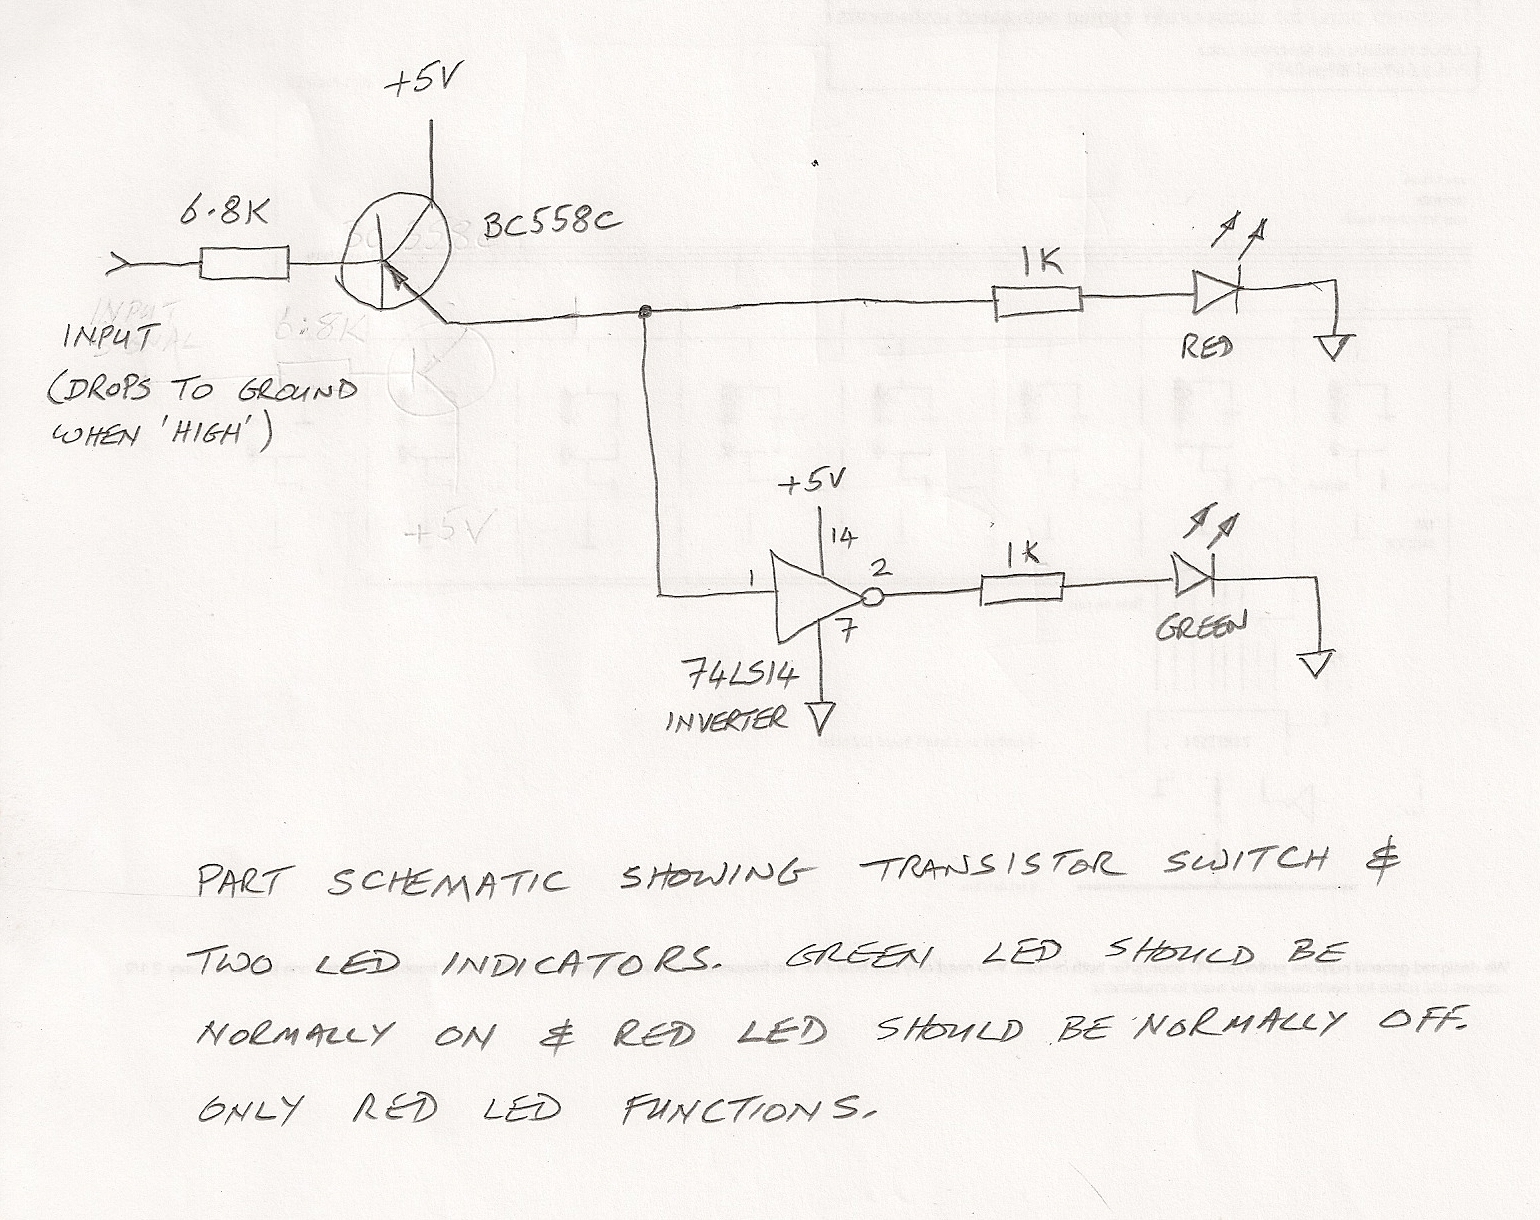 +5V
6.8K
BC558C
1K
RED
INPUT
(DROPS TO GROUND
WHEN 'HIGH')
+5V
14
1
2
7
1K
GREEN
74LS14
INVERTER
INPUT
6.8K
+5V
PART SCHEMATIC SHOWING TRANSISTOR SWITCH &
TWO LED INDICATORS. GREEN LED SHOULD BE
NORMALLY ON & RED LED SHOULD BE NORMALLY OFF.
ONLY RED LED FUNCTIONS.